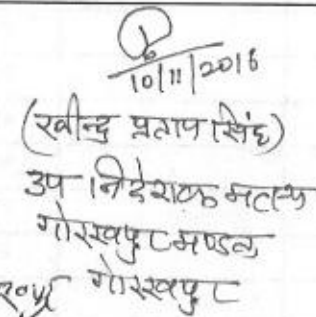 10/11/2016
(रवीन्द्र प्रताप सिंह)
उप निदेशक मत्स्य
गोरखपुर मण्डल
गोरखपुर